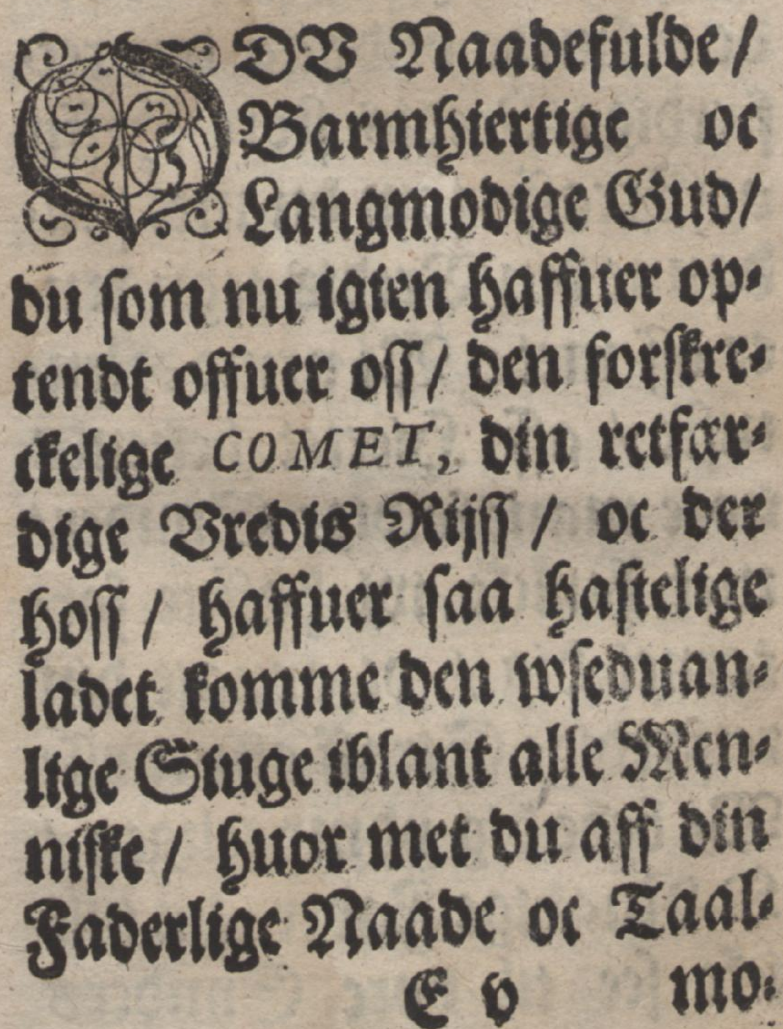 ODV Naadefulde /
Barmhiertige oc
Langmodige Gud /
du som nu igien haffuer op-
tendt offuer oss / den forskre-
ckelige COMET, din retfær-
dige Vredis Rijss / oc der
hoss / haffuer saa hastelige
ladet komme den wseduan-
lige Siuge iblant alle Men-
niske / huor met du aff din
Faderlige Naade oc Taal-
E v mo-